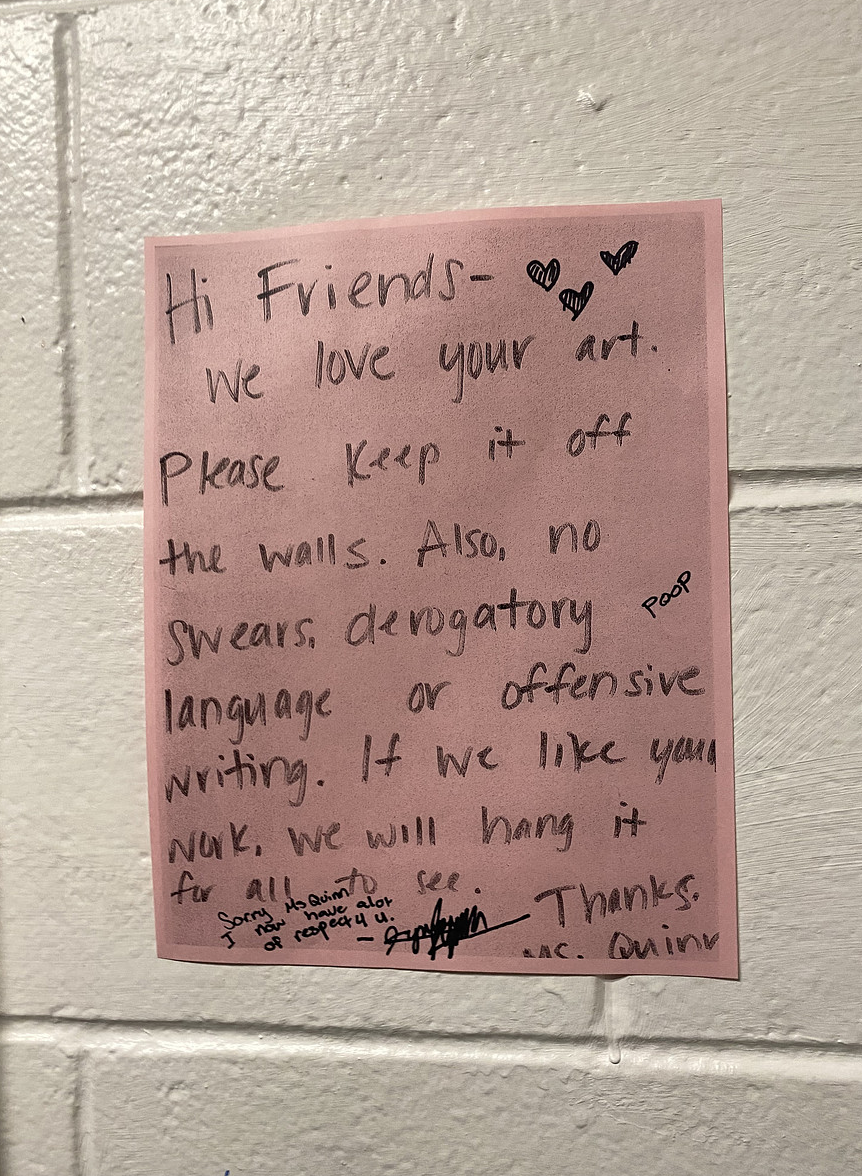 Hi Friends-
We love your art.
Please keep it off
the walls. Also, no
swears, derogatory
POOP
language or offensive
writing. If we like your
work, we will hang it
for all to see.
Thanks,
Ms. Quinn
Sorry Ms Quinn
I now have alot
of respect 4 u.